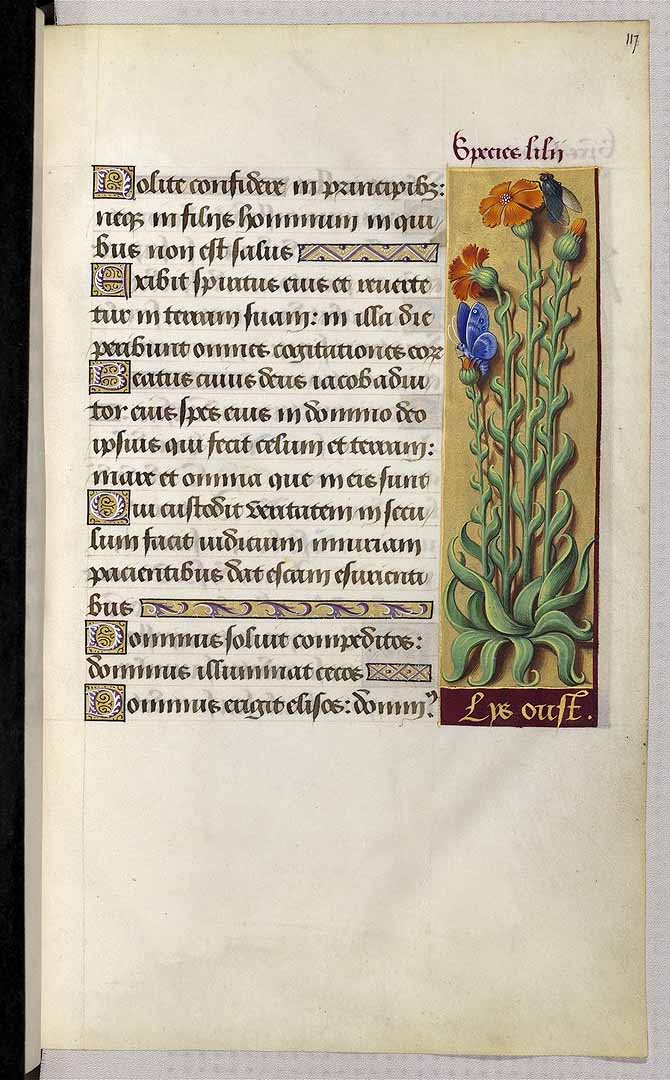 117
Species lilij
Nolite confidere in principibꝫ:
neqꝫ in filijs hominum in qui
bus non est salus
Exibit spiritus eius et reuerte
tur in terram suam: in illa die
peribunt omnes cogitationes eoꝝ
Beatus cuius deus iacob adiu
tor eius spes eius in domino deo
ipsius qui fecit celum et terram:
mare et omnia que in eis sunt
Qui custodit veritatem in secu
lum facit iudicium iniuriam
pacientibus dat escam esurienti
bus
Dominus soluit compeditos:
dominus illuminat cecos
Dominus erigit elisos: domin⁹
Lys oust.